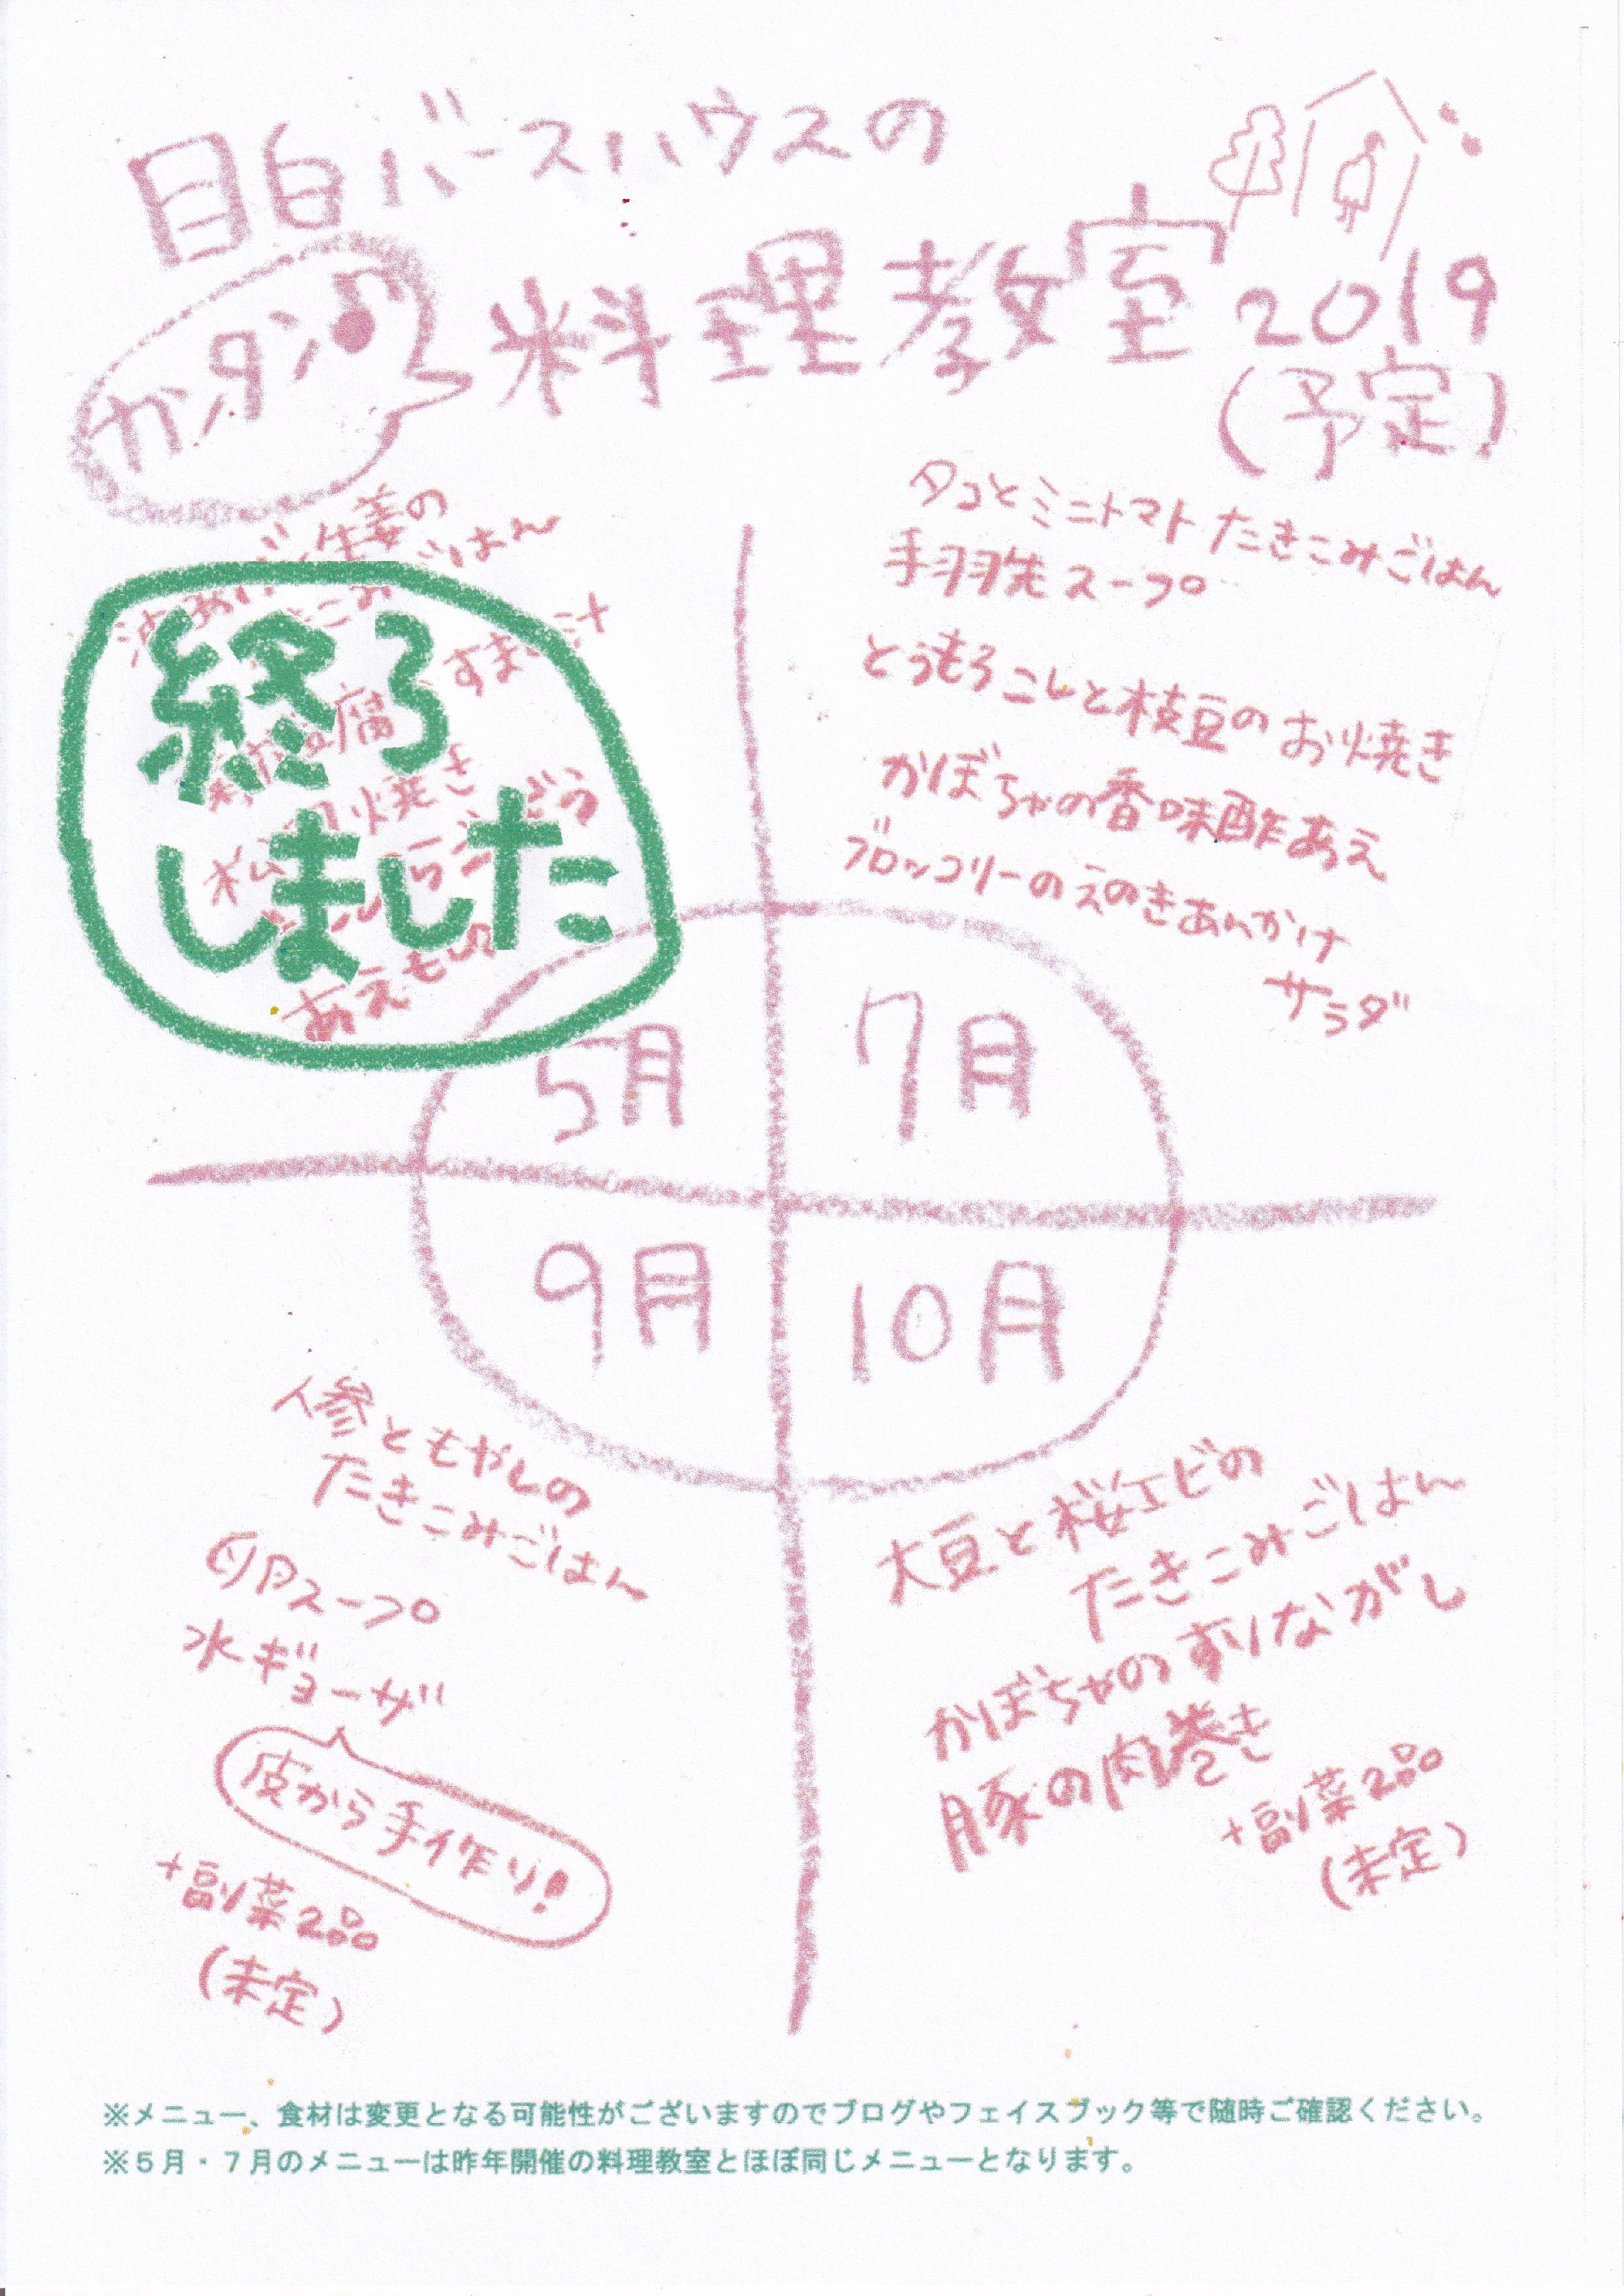 目白バースハウスの
カンタン♪
料理教室 2019
(予定)
生姜の
ごはん
すまし汁
終了
しました
あえもの
5月
タコとミニトマトたきこみごはん
手羽先スープ
とうもろこしと枝豆のお焼き
かぼちゃの香味酢あえ
ブロッコリーのえのきあんかけ
サラダ
7月
9月
人参ともやしの
たきこみごはん
卵スープ
水ギョーザ
皮から手作り!
+副菜2品
(未定)
10月
大豆と桜エビの
たきこみごはん
かぼちゃのすりながし
豚の肉巻き
+副菜2品
(未定)
※メニュー、食材は変更となる可能性がございますのでブログやフェイスブック等で随時ご確認ください。
※5月・7月のメニューは昨年開催の料理教室とほぼ同じメニューとなります。